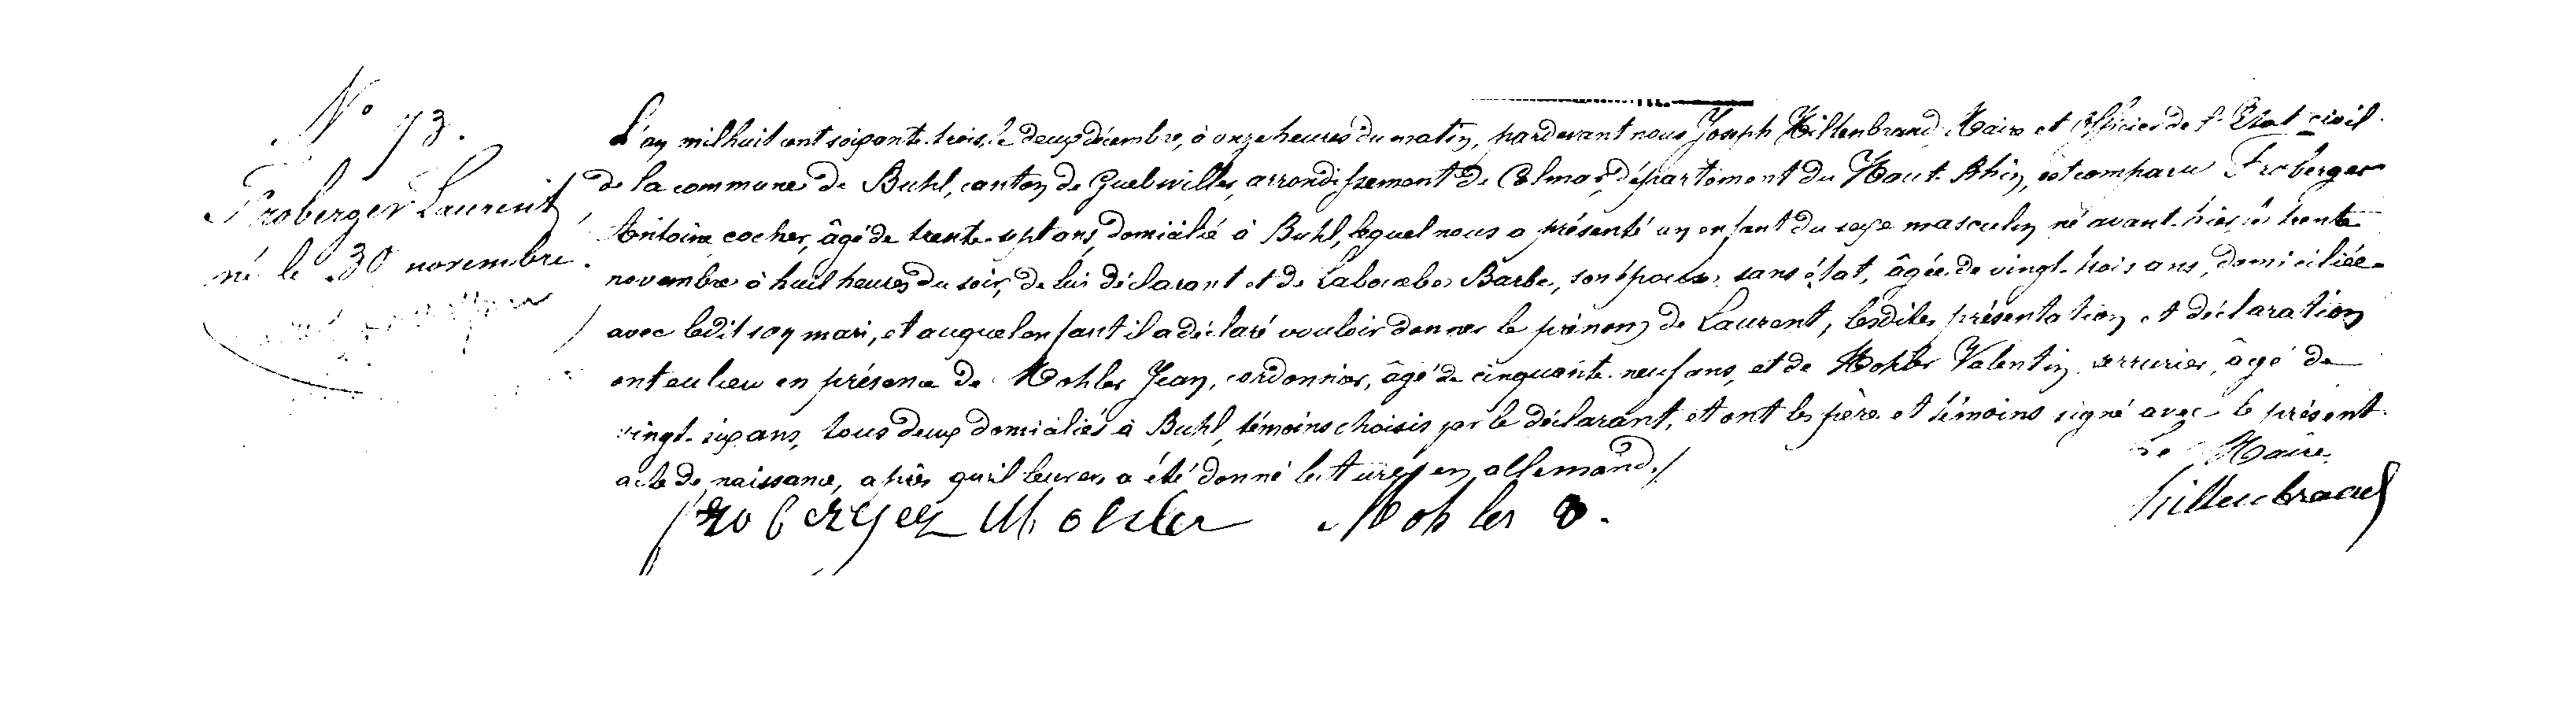 N° 73.
Froberger Laurent
né le 30 novembre.
L'an mil huit cent soixante-trois, le deux décembre, à onze heures du matin, pardevant nous Joseph Hillenbrand, Maire et Officier de l'Etat civil
de la commune de Buhl, canton de Guebwiller, arrondissement de Colmar, département du Haut-Rhin, est comparu Froberger
Antoine cocher, âgé de trente-sept ans, domicilié à Buhl, lequel nous a présenté un enfant du sexe masculin né avant-hier, le trente
novembre à huit heures du soir, de lui déclarant et de Barbe, son épouse, sans état, âgée de vingt-trois ans, domiciliée
avec ledit son mari, et auquel enfant il a déclaré vouloir donner le prénom de Laurent, lesdites présentation et déclaration
ont eu lieu en présence de Mohler Jean, cordonnier, âgé de cinquante-neuf ans, et de Mohler Valentin, serrurier, âgé de
vingt-six ans, tous deux domiciliés à Buhl, témoins choisis par le déclarant, et ont les père et témoins signé avec le présent
acte de naissance, après qu'il leur en a été donné lecture en allemand./
Le Maire
froberger Mohler Mohler
hillenbrand